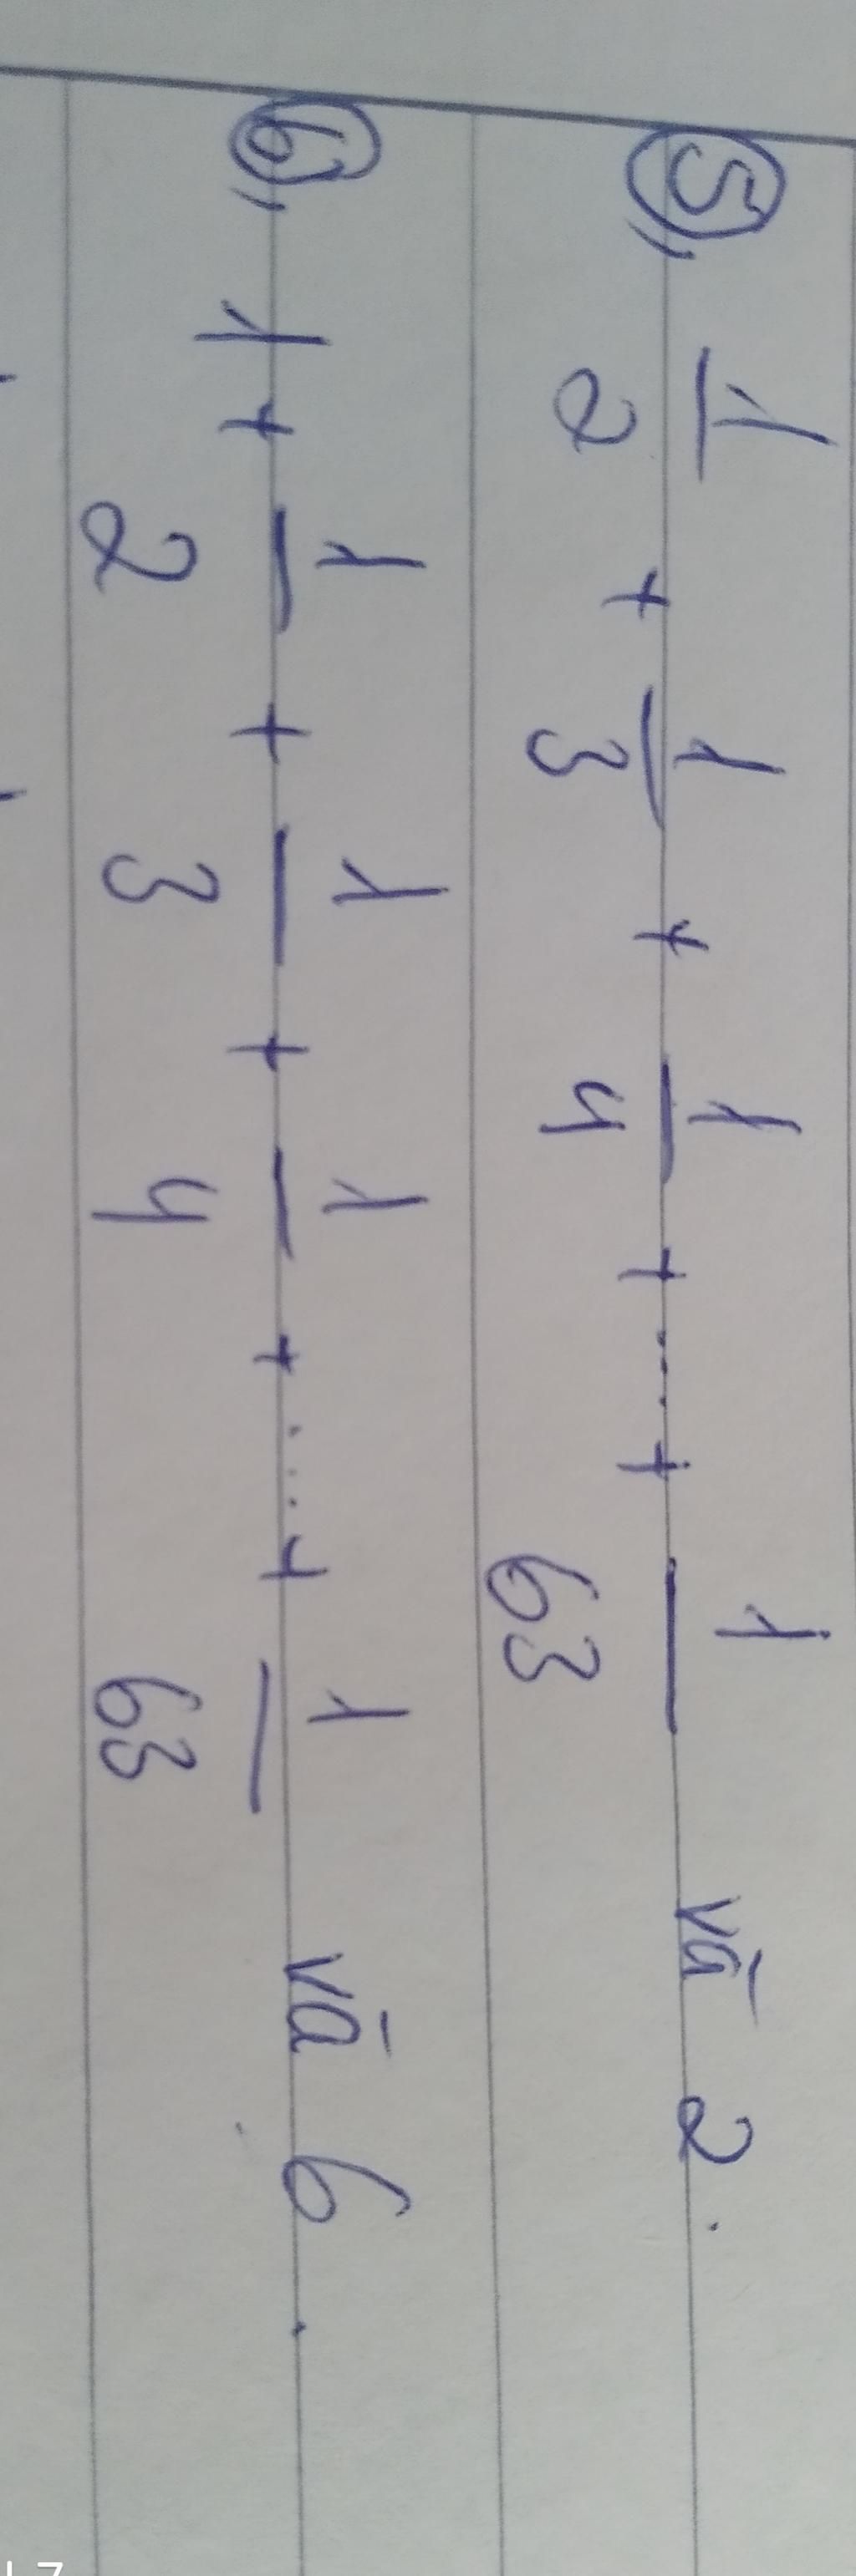 5, 1/2 + 1/3 + 1/4 + ... + 1/63 và 2.
6, 1 + 1/2 + 1/3 + 1/4 + ... + 1/63 và 6.